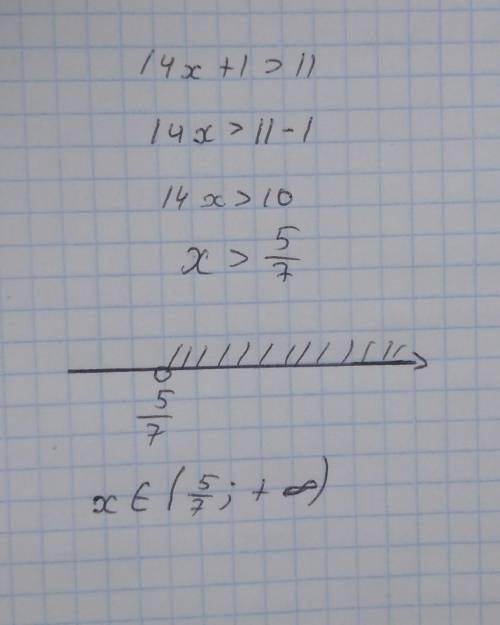 14x + 1 > 11
14x > 11 - 1
14x > 10
x > 5/7
5/7
x ∈ (5/7; + ∞)